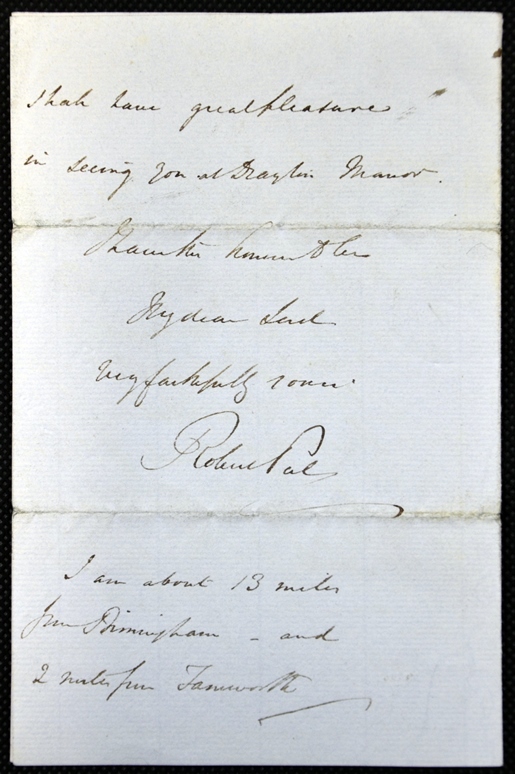 shall have great pleasure
in seeing you at Drayton Manor.
I have the honour to be
My dear Lord
Very faithfully yours
Robert Peel
I am about 13 miles
from Birmingham – and
2 miles from Tamworth